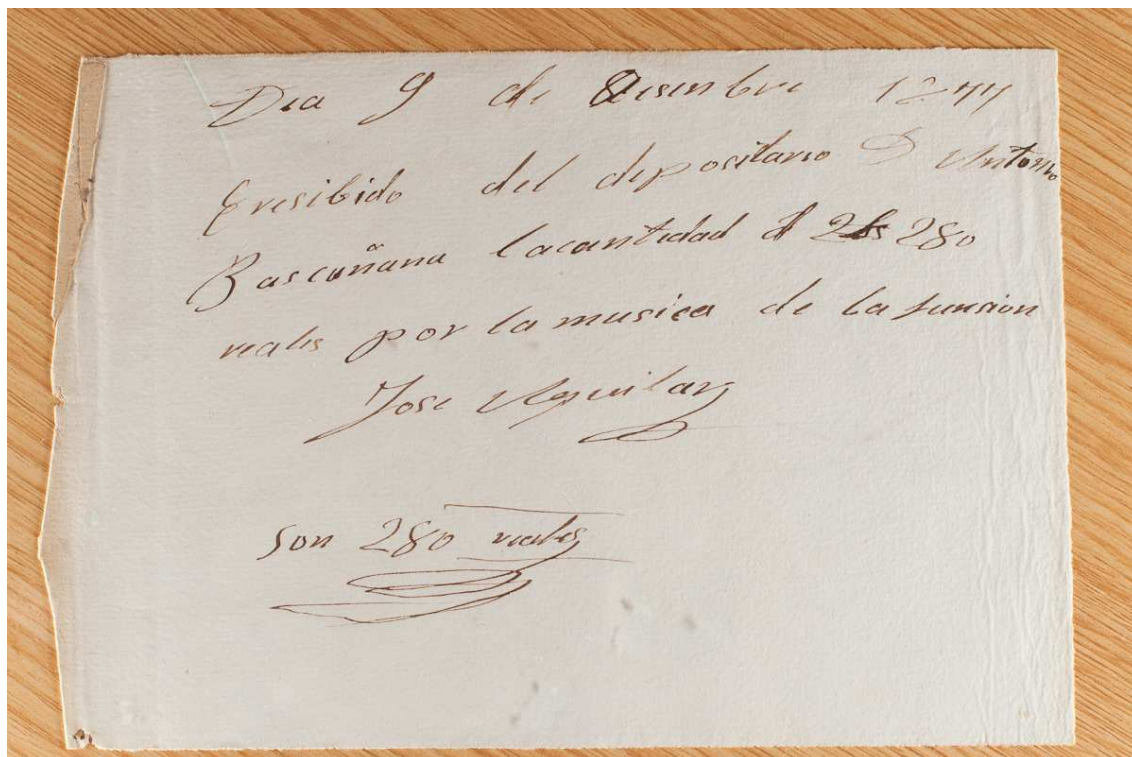 Dia 9 de Disenbre 1877
Eresibido del depositario D Antonio
Bascuñana lacantidad d 280
reales por la musica de la funsion
Jose Aguilar
son 280 reales